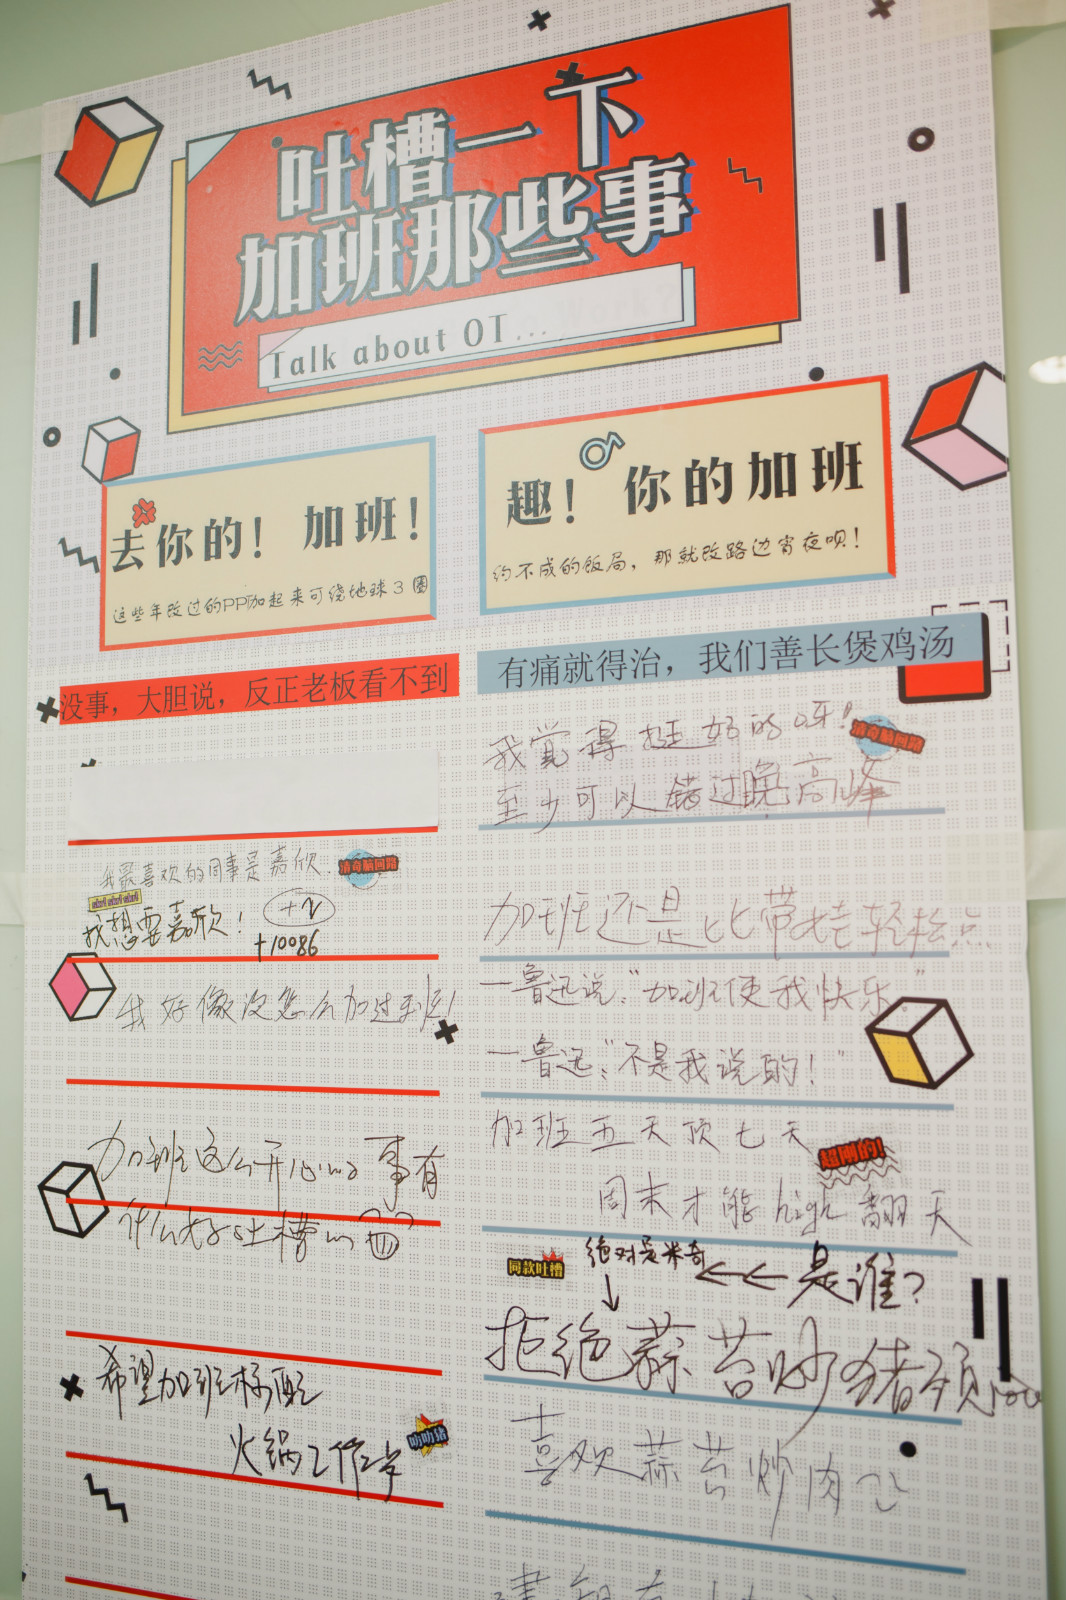 吐槽一下
加班那些事
Talk about OT...
去你的！加班！
这些年改过的PPT加起来可绕地球3圈
趣！你的加班
约不成的饭局，那就改路边宵夜呗！
没事，大胆说，反正老板看不到
有痛就得治，我们善长煲鸡汤
我最喜欢的同事是嘉欣.
清奇脑回路
我想要嘉欣！
+2
+10086
我好像没怎么加过班！
加班这么开心的事有
什么好吐槽的
希望加班标配
火锅工作餐
叻叻猪
我觉得挺好的呀！
清奇脑回路
至少可以错过晚高峰
加班还是比带娃轻松点
一鲁迅说："加班使我快乐"
一鲁迅："不是我说的！"
加班五天顶七天
超刚的！
周末才能high翻天
同款吐槽
绝对是米奇
是谁？
拒绝蒜苔炒猪颈
喜欢蒜苔炒肉